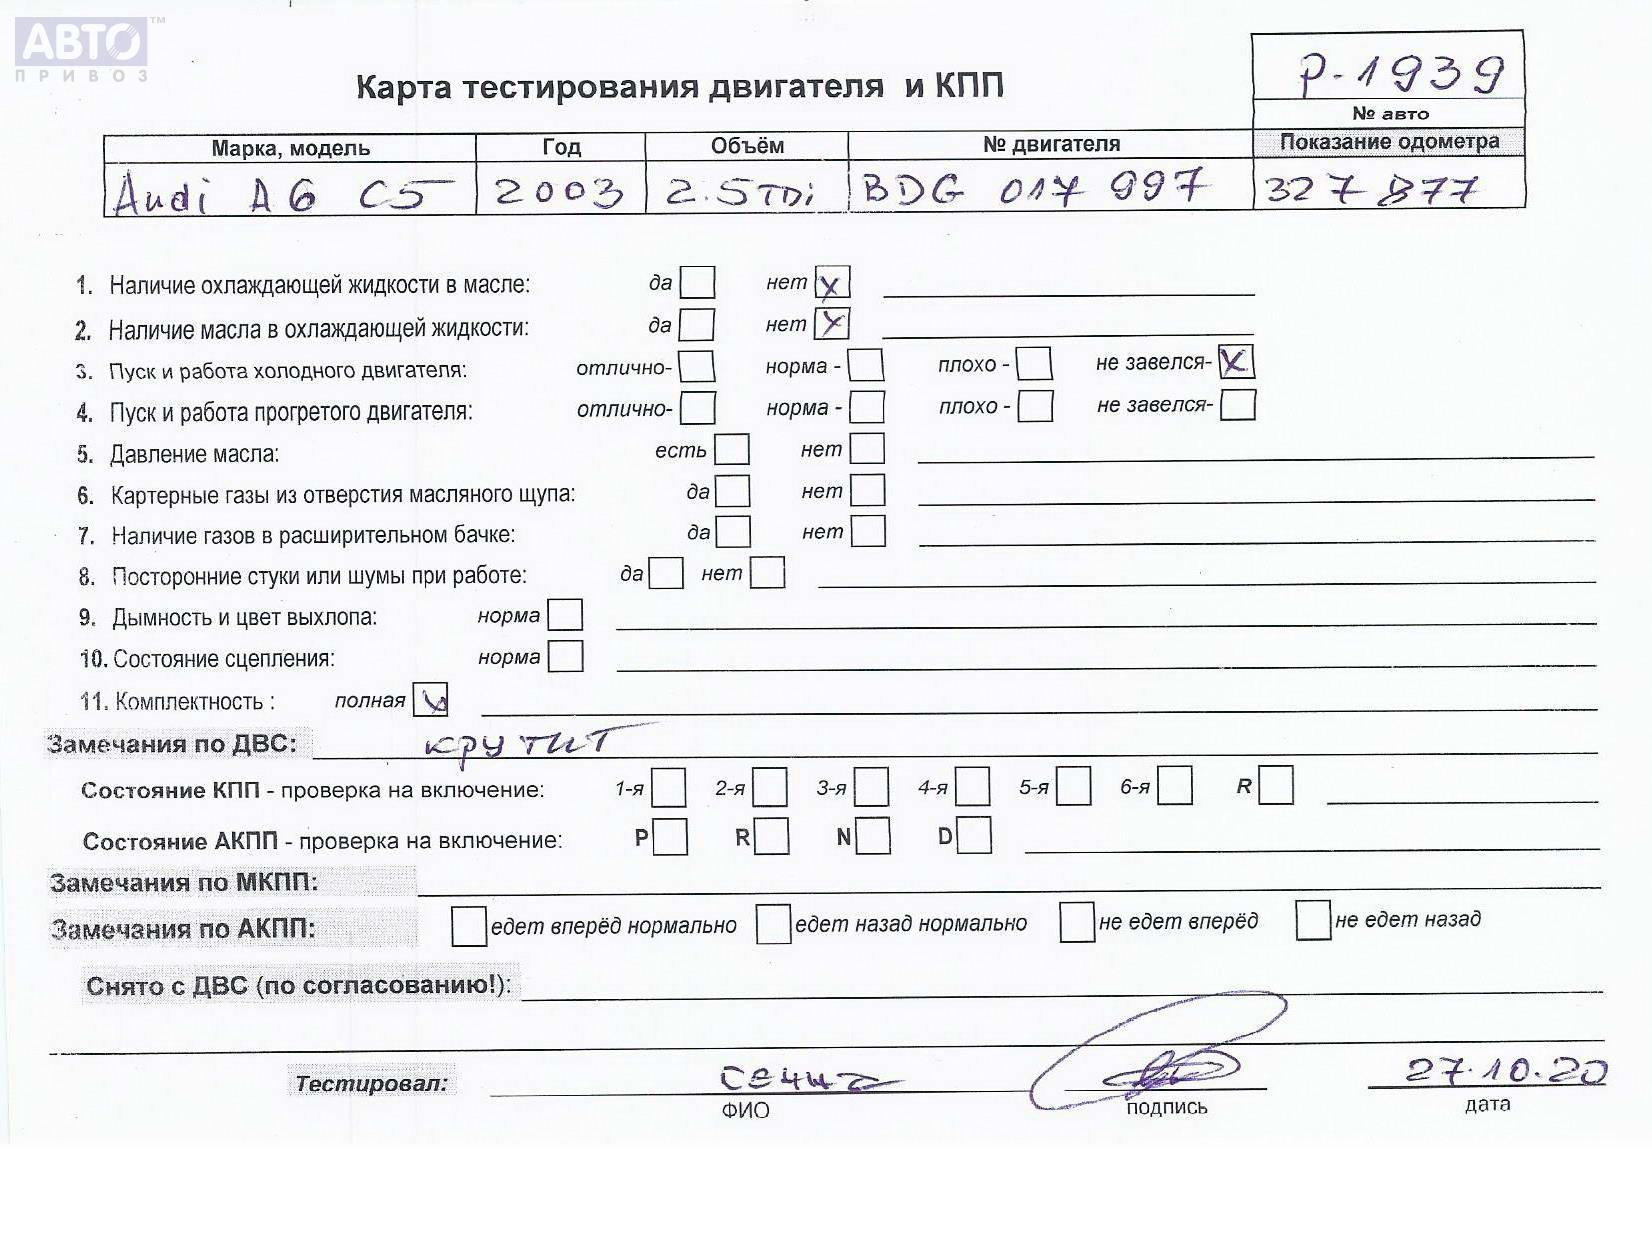 АВТО™
ПРИВОЗ
Р-1939
Карта тестирования двигателя и КПП
№ авто
Марка, модель Год Объём № двигателя Показание одометра
Audi A6 C5 2003 2.5TDi BDG 017 997 327 877
1. Наличие охлаждающей жидкости в масле: да нет X
2. Наличие масла в охлаждающей жидкости: да нет X
3. Пуск и работа холодного двигателя: отлично- норма - плохо - не завелся- X
4. Пуск и работа прогретого двигателя: отлично- норма - плохо - не завелся-
5. Давление масла: есть нет
6. Картерные газы из отверстия масляного щупа: да нет
7. Наличие газов в расширительном бачке: да нет
8. Посторонние стуки или шумы при работе: да нет
9. Дымность и цвет выхлопа: норма
10. Состояние сцепления: норма
11. Комплектность : полная
Замечания по ДВС: крутит
Состояние КПП - проверка на включение: 1-я 2-я 3-я 4-я 5-я 6-я R
Состояние АКПП - проверка на включение: P R N D
Замечания по МКПП:
Замечания по АКПП: едет вперёд нормально едет назад нормально не едет вперёд не едет назад
Снято с ДВС (по согласованию!):
Тестировал: 27.10.20
ФИО подпись дата